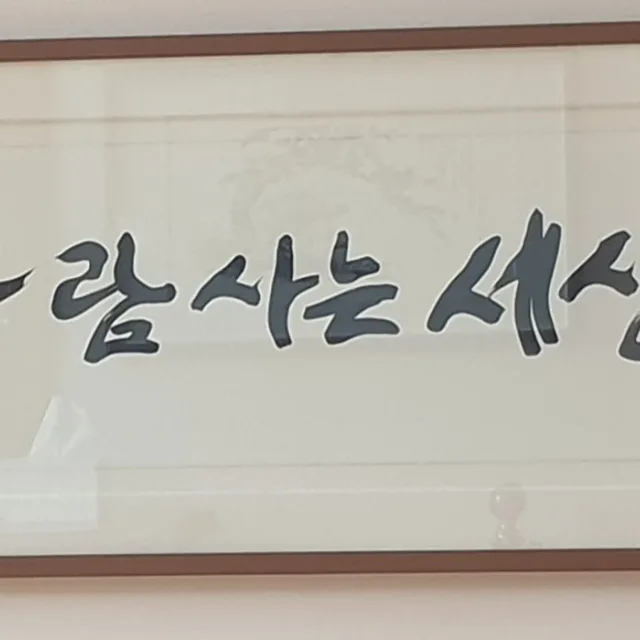 람 사는 세